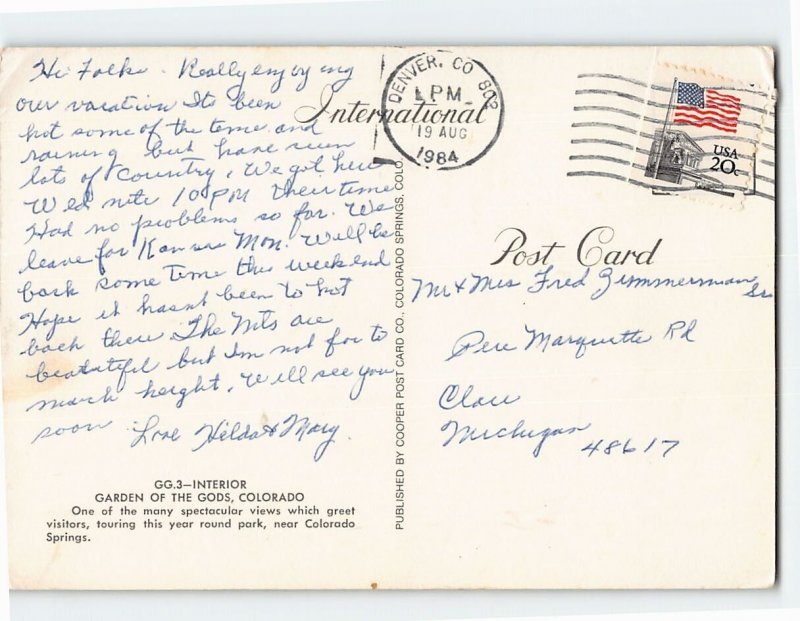 Hi Folks. Really enjoying
our vacation Its been
hot some of the time and
raining but have seen
lots of country. We got here
Wed nite 10 PM their time
Had no problems so far. We
leave for Kansas Mon. Will be
back some time this weekend
Hope it hasnt been to hot
back there The Mts are
beautatifil but Im not for to
much height. Will see you
soon Love Hilda & Mary.
GG.3—INTERIOR
GARDEN OF THE GODS, COLORADO
One of the many spectacular views which greet
visitors, touring this year round park, near Colorado
Springs.
International
PUBLISHED BY COOPER POST CARD CO., COLORADO SPRINGS, COLO.
DENVER, CO 802
PM
19 AUG
1984
USA
20c
Post Card
Mr & Mrs Fred Zimmerman Sr
Pere Marquette Rd
Clare
Michigan 48617